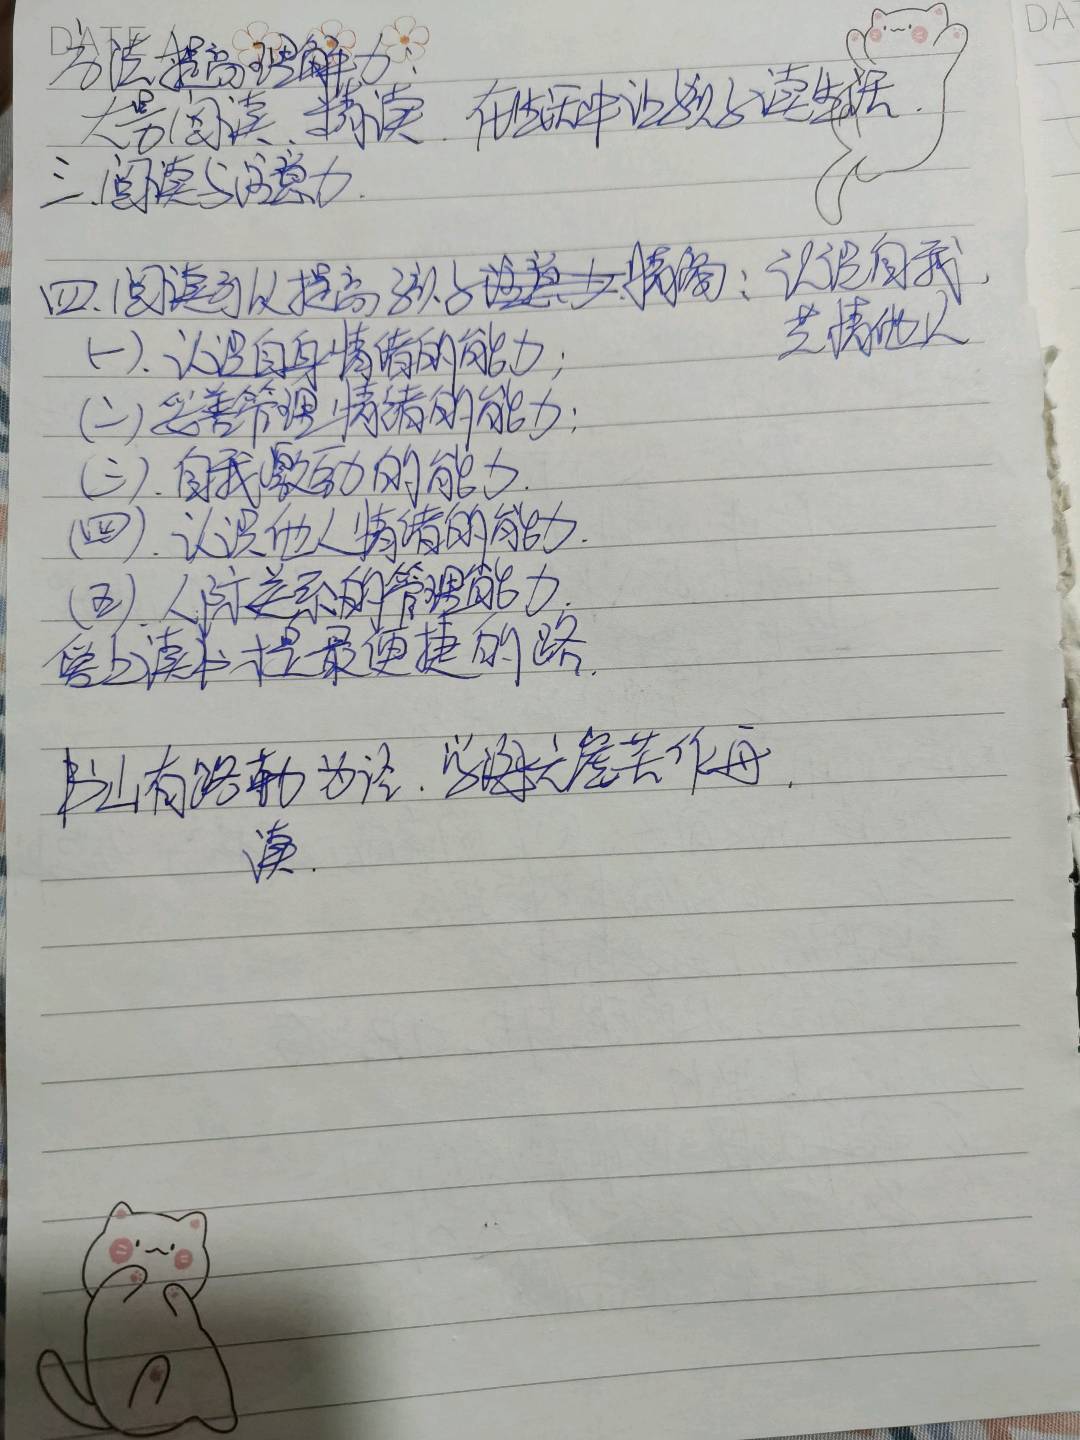 DATE
方法提高理解力:
大量阅读、精读. 在生活中让孩子读生活.
三.阅读与注意力.
四.阅读可以提高孩子注意力情商: 认识自我、
共情他人
(一). 认识自身情绪的能力;
(二) 妥善管理情绪的能力;
(三). 自我激励的能力.
(四). 认识他人情绪的能力.
(五). 人际关系的管理能力.
爱上读书才是最便捷的路.
书山有路勤为径. 学海无崖苦作舟.
读.
DA